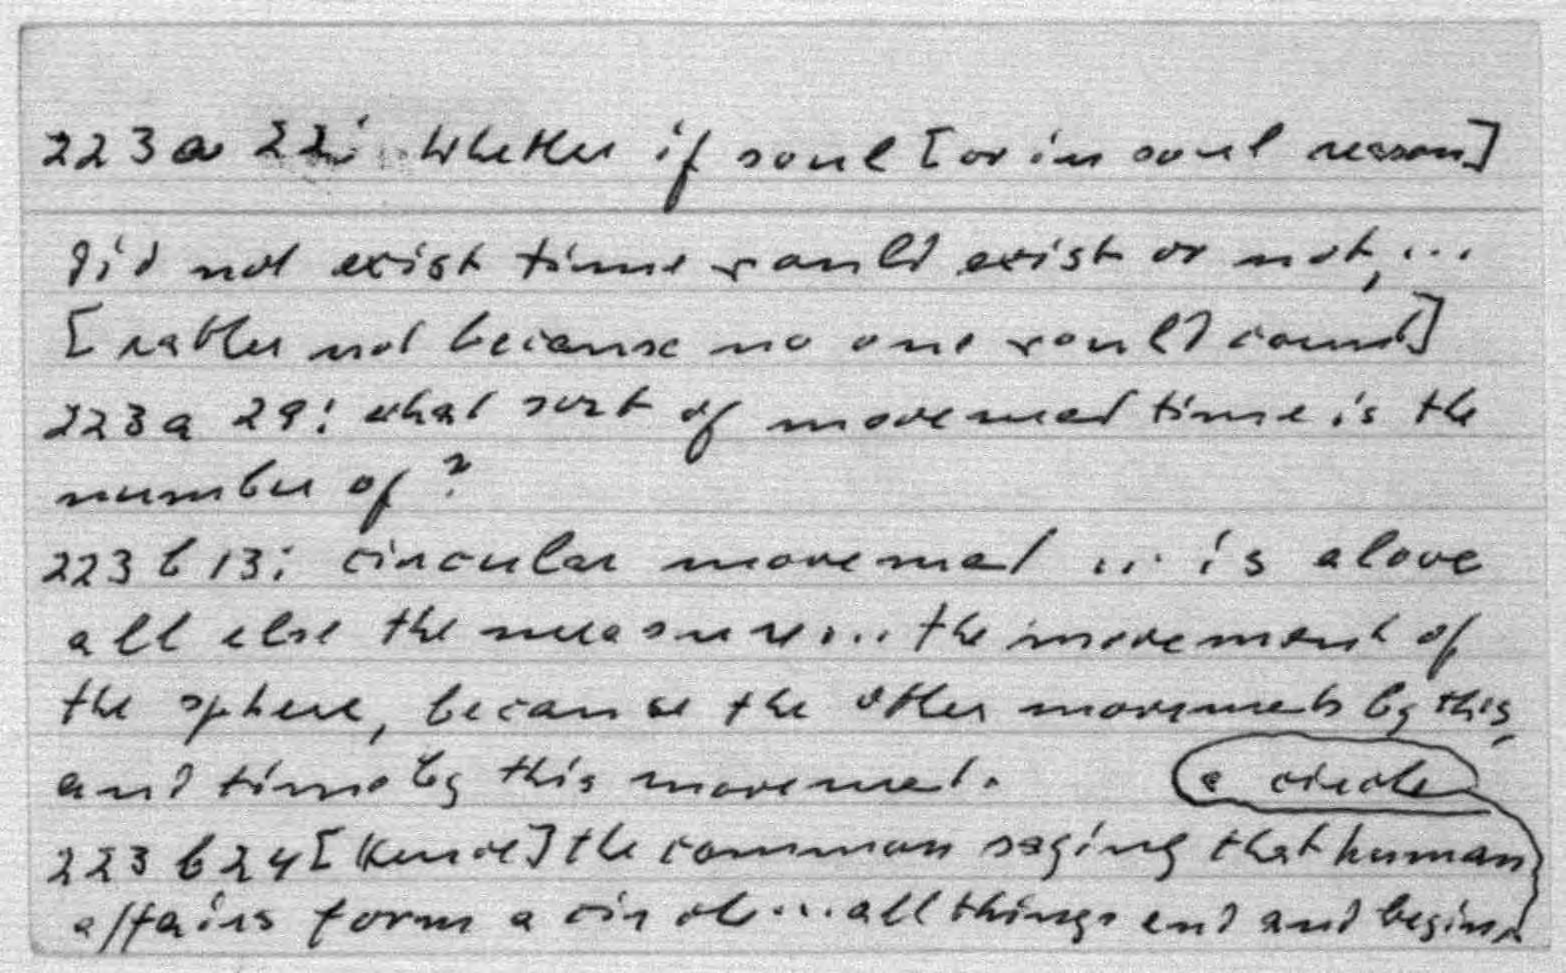 223a 22: Whether if soul [or in soul reason]
did not exist time would exist or not, ...
[rather not because no one would count]
223a 29: what sort of movement time is the
number of?
223 b 13: circular movement ... is above
all else the measure ... the movement of
the sphere, because the other movements by this,
and time by this movement.
a circle
223 b 24 [Hence] the common saying that human
affairs form a circle ... all things end and begin